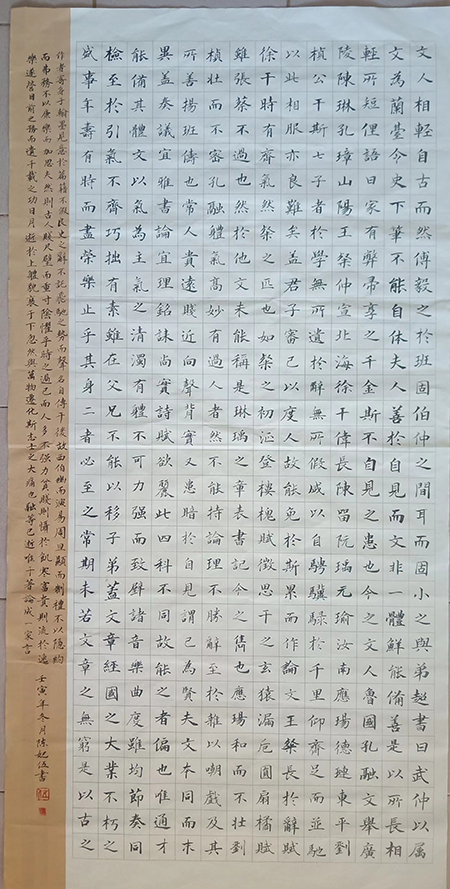 文人相輕自古而然傅毅之於班固伯仲之間耳而固小之與弟超書曰武仲以屬
文為蘭臺令史下筆不能自休夫人善於自見而文非一體鮮能備善是以所長相
輕所短俚語曰家有弊帚享之千金斯不自見之患也今之文人魯國孔融文舉廣
陵陳琳孔璋山陽王粲仲宣北海徐干偉長陳留阮瑀元瑜汝南應瑒德璉東平劉
楨公干斯七子者於學無所遺於辭無所假咸以自騁驥騄於千里仰齊足而並馳
以此相服亦良難矣蓋君子審己以度人故能免於斯累而作論文王粲長於辭賦
徐干時有齊氣然粲之匹也如粲之初征登樓槐賦征思干之玄猿漏卮圓扇橘賦
雖張蔡不過也然於他文未能稱是琳瑀之章表書記今之雋也應瑒和而不壯劉
楨壯而不密孔融體氣高妙有過人者然不能持論理不勝辭至於雜以嘲戲及其
所善揚班儔也常人貴遠賤近向聲背實又患闇於自見謂己為賢夫文本同而末
異蓋奏議宜雅書論宜理銘誄尚實詩賦欲麗此四科不同故能之者偏也唯通才
能備其體文以氣為主氣之清濁有體不可力強而致譬諸音樂曲度雖均節奏同
檢至於引氣不齊巧拙有素雖在父兄不能以移子弟蓋文章經國之大業不朽之
盛事年壽有時而盡榮樂止乎其身二者必至之常期未若文章之無窮是以古之
作者寄身於翰墨見意於篇籍不假良史之辭不託飛馳之勢而聲名自傳於後故西伯幽而演易周旦顯而制禮不以隱約
而弗務不以康樂而加思夫然則古人賤尺璧而重寸陰懼乎時之過已而人多不強力貧賤則懾於飢寒富貴則流於逸
樂遂營目前之務而遺千載之功日月逝於上體貌衰於下忽然與萬物遷化斯志士之大痛也融等已逝唯干著論成一家言 壬寅年冬月陳妃伍書